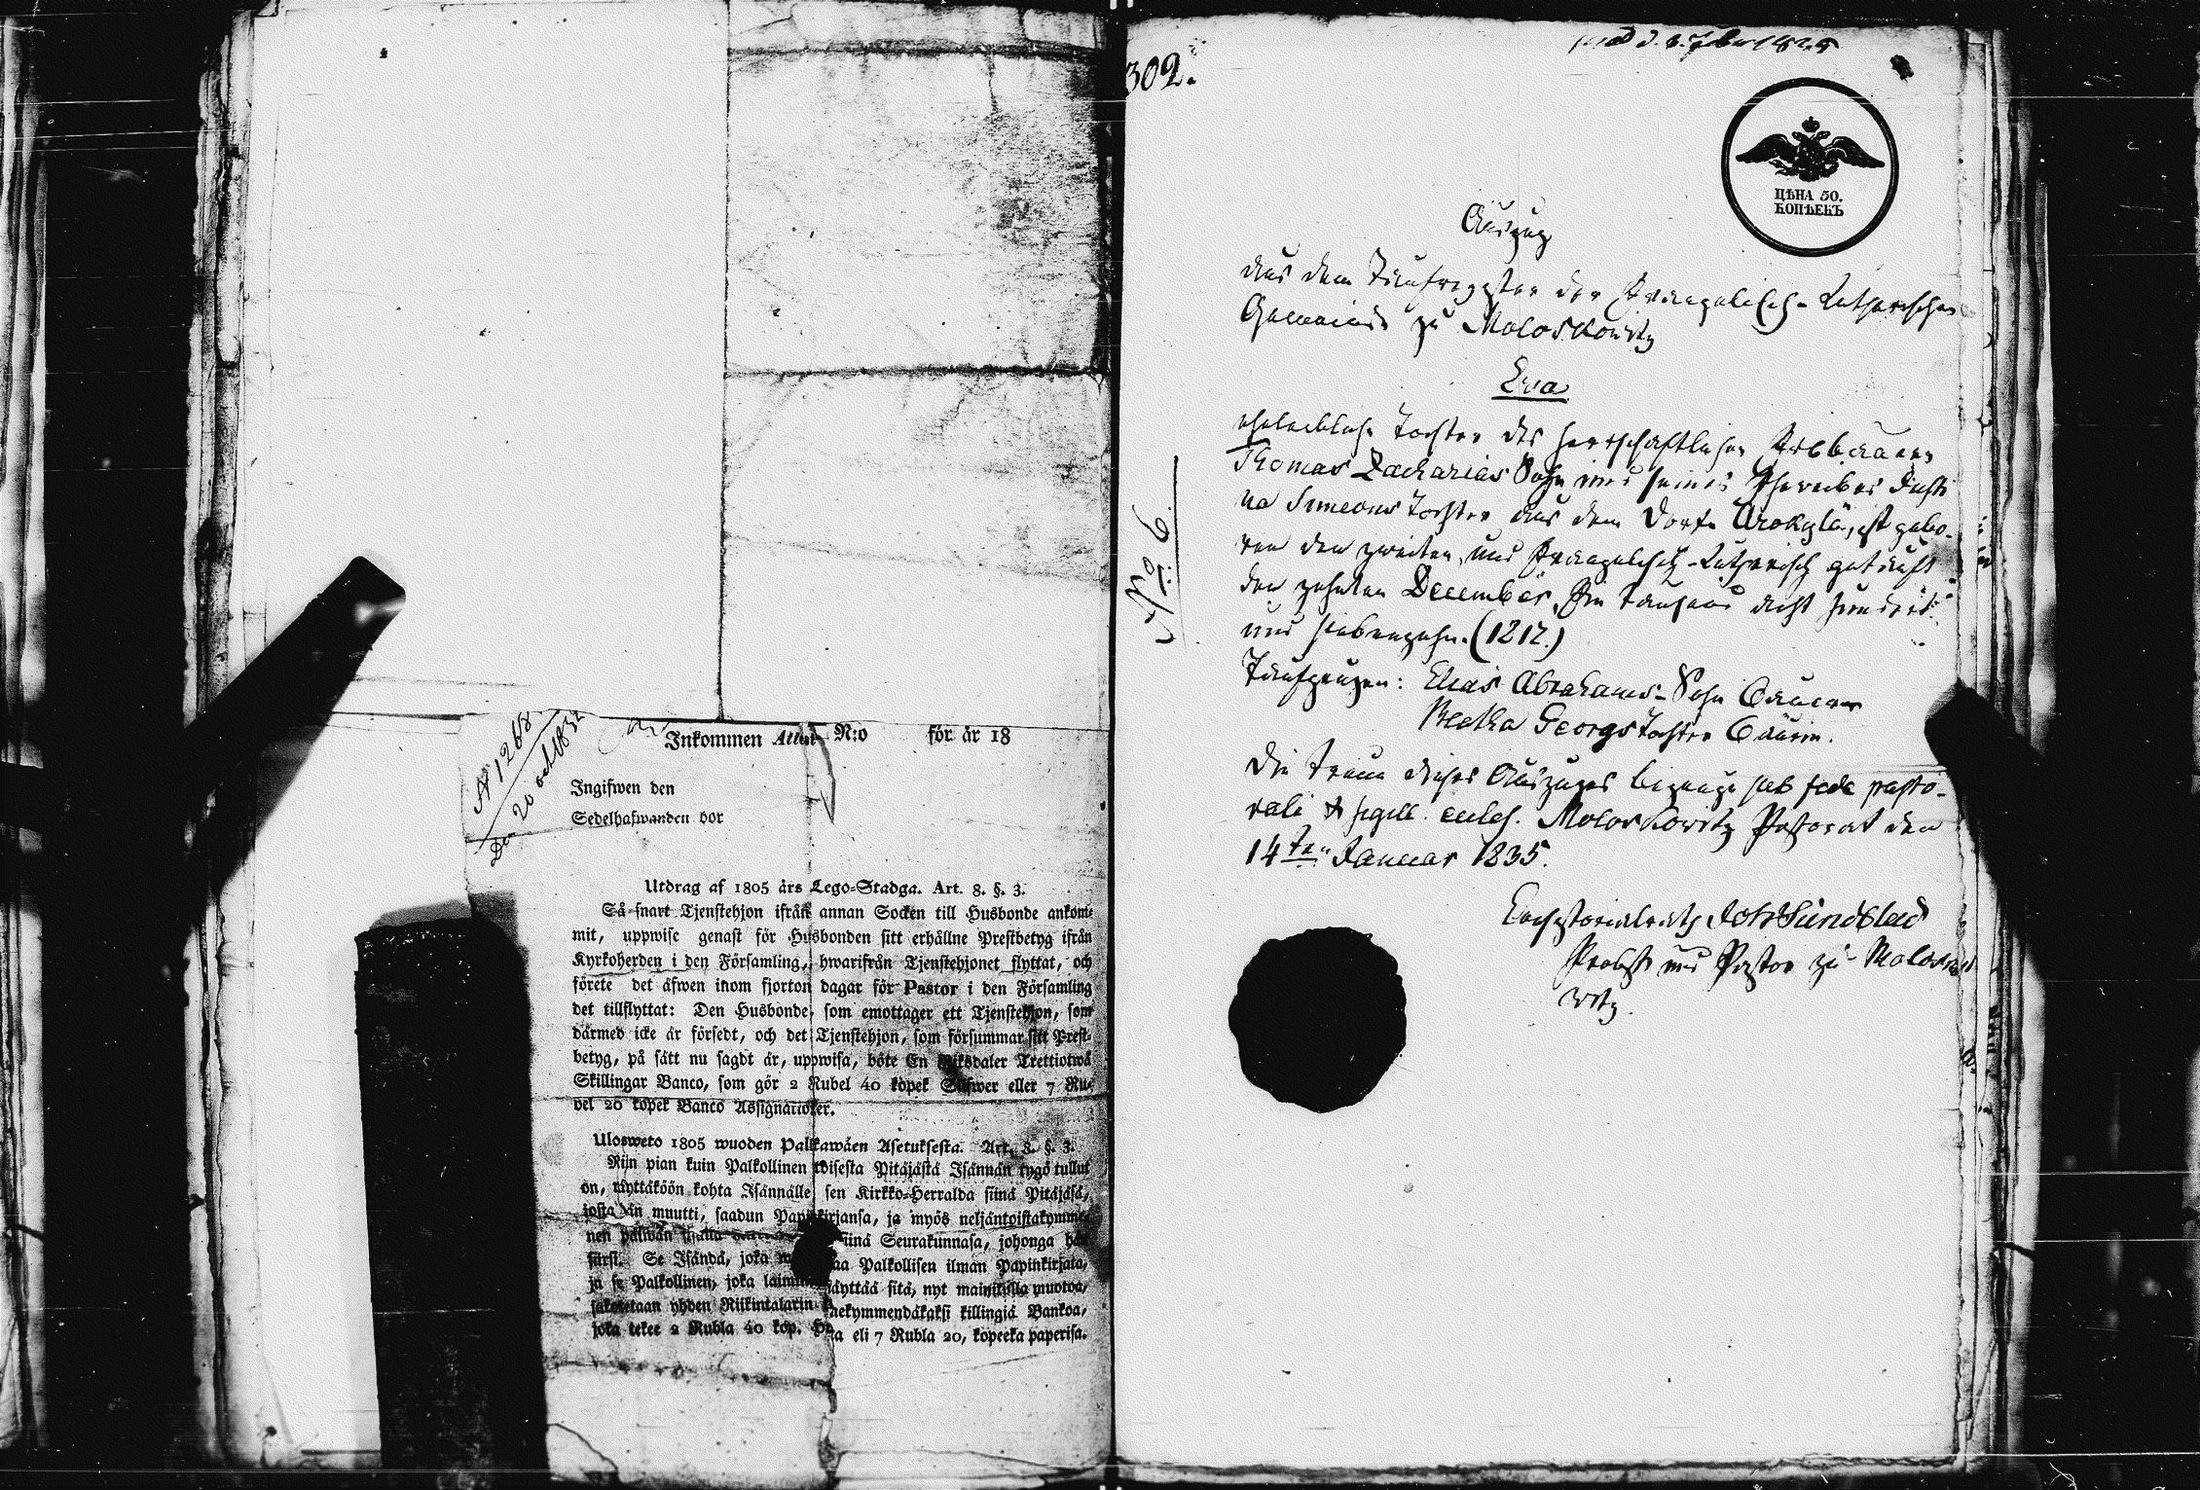 No 1268
Den 20 oct 1832
Inkommen Attest N:o för år 18
Ingifwen den
Sedelhafwanden bor
Utdrag af 1805 års Lego-Stadga. Art. 8. §. 3.
Så snart Tjenstehjon ifrån annan Socken till Husbonde ankom-
mit, uppwise genast för Husbonden sitt erhållne Prestbetyg ifrån
Kyrkoherden i den Församling, hwarifrån Tjenstehjonet flyttat, och
förete det äfwen inom fjorton dagar för Pastor i den Församling
det tillflyttat: Den Husbonde, som emottager ett Tjenstehjon, som
därmed icke är försedt, och det Tjenstehjon, som försummar sitt Prest-
betyg, på sätt nu sagdt är, uppwisa, böte En Riksdaler Trettiotwå
Skillingar Banco, som gör 2 Rubel 40 kopek Silfwer eller 7 Ru-
bel 20 kopek Banco Assignationer.
Ulosweto 1805 wuoden Palkawäen Asetuksesta. Art. 8. §. 3.
Niin pian kuin Palkollinen toisesta Pitäjästä Isännän tygö tullut
on, näyttäköön kohta Isännälle sen Kirkko-Herralda siinä Pitäjäsä,
josta hän muutti, saadun Papinkirjansa, ja myös neljäntoistakymme-
nen päiwän siinä Seurakunnasa, johonga hän
siirsi. Se Isändä, joka Palkollisen ilman Papinkirjata,
ja se Palkollinen, joka näyttää sitä, nyt mainitulla muotoa,
sakotetaan yhden Riikintalarin killingiä Bankoa,
joka tekee 2 Rubla 40 kop. eli 7 Rubla 20, kopeeka paperisa.
302.
ЦѢНА 50.
КОПѢЕКЪ
No: 6.
Auszug
aus dem Taufregister der Evangelisch-Lutherischen
Gemeinde zu Moloskowitz
Eva
eheleibliche Tochter des herrschaftlichen Erbbauern
Thomas Zacharias Sohn und seines Eheweibes Justi
na Simeons Tochter aus dem Dorfe ist gebo-
ren den zweiten, und Evangelisch-Lutherisch getauft
den zehnten December, Ein Tausend acht hundert
und siebenzehn. (1817.)
Taufzeugen: Elias Abrahams-Sohn Bauer
Georgs Tochter Bäurin.
Die Treue dieses Auszuges bezeuge sub fide pasto-
rali & sigill. eccles. Moloskowitz Pastorat den
14ten Januar 1835.
Consistorialrath Joh Sundblad
Probst und Pastor zu Molosko
witz.